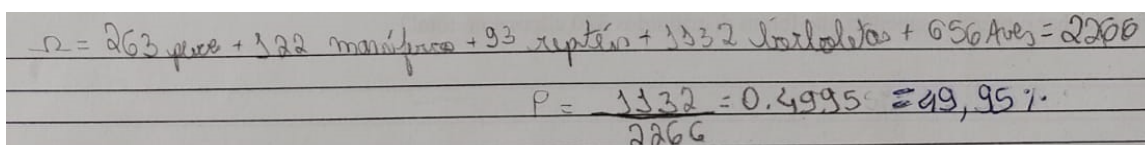 Ω = 263 peixe + 122 mamíferos + 93 repteis + 1132 borboletas + 656 Aves = 2266
P = 1132 = 0.4995 = 49,95%
2266